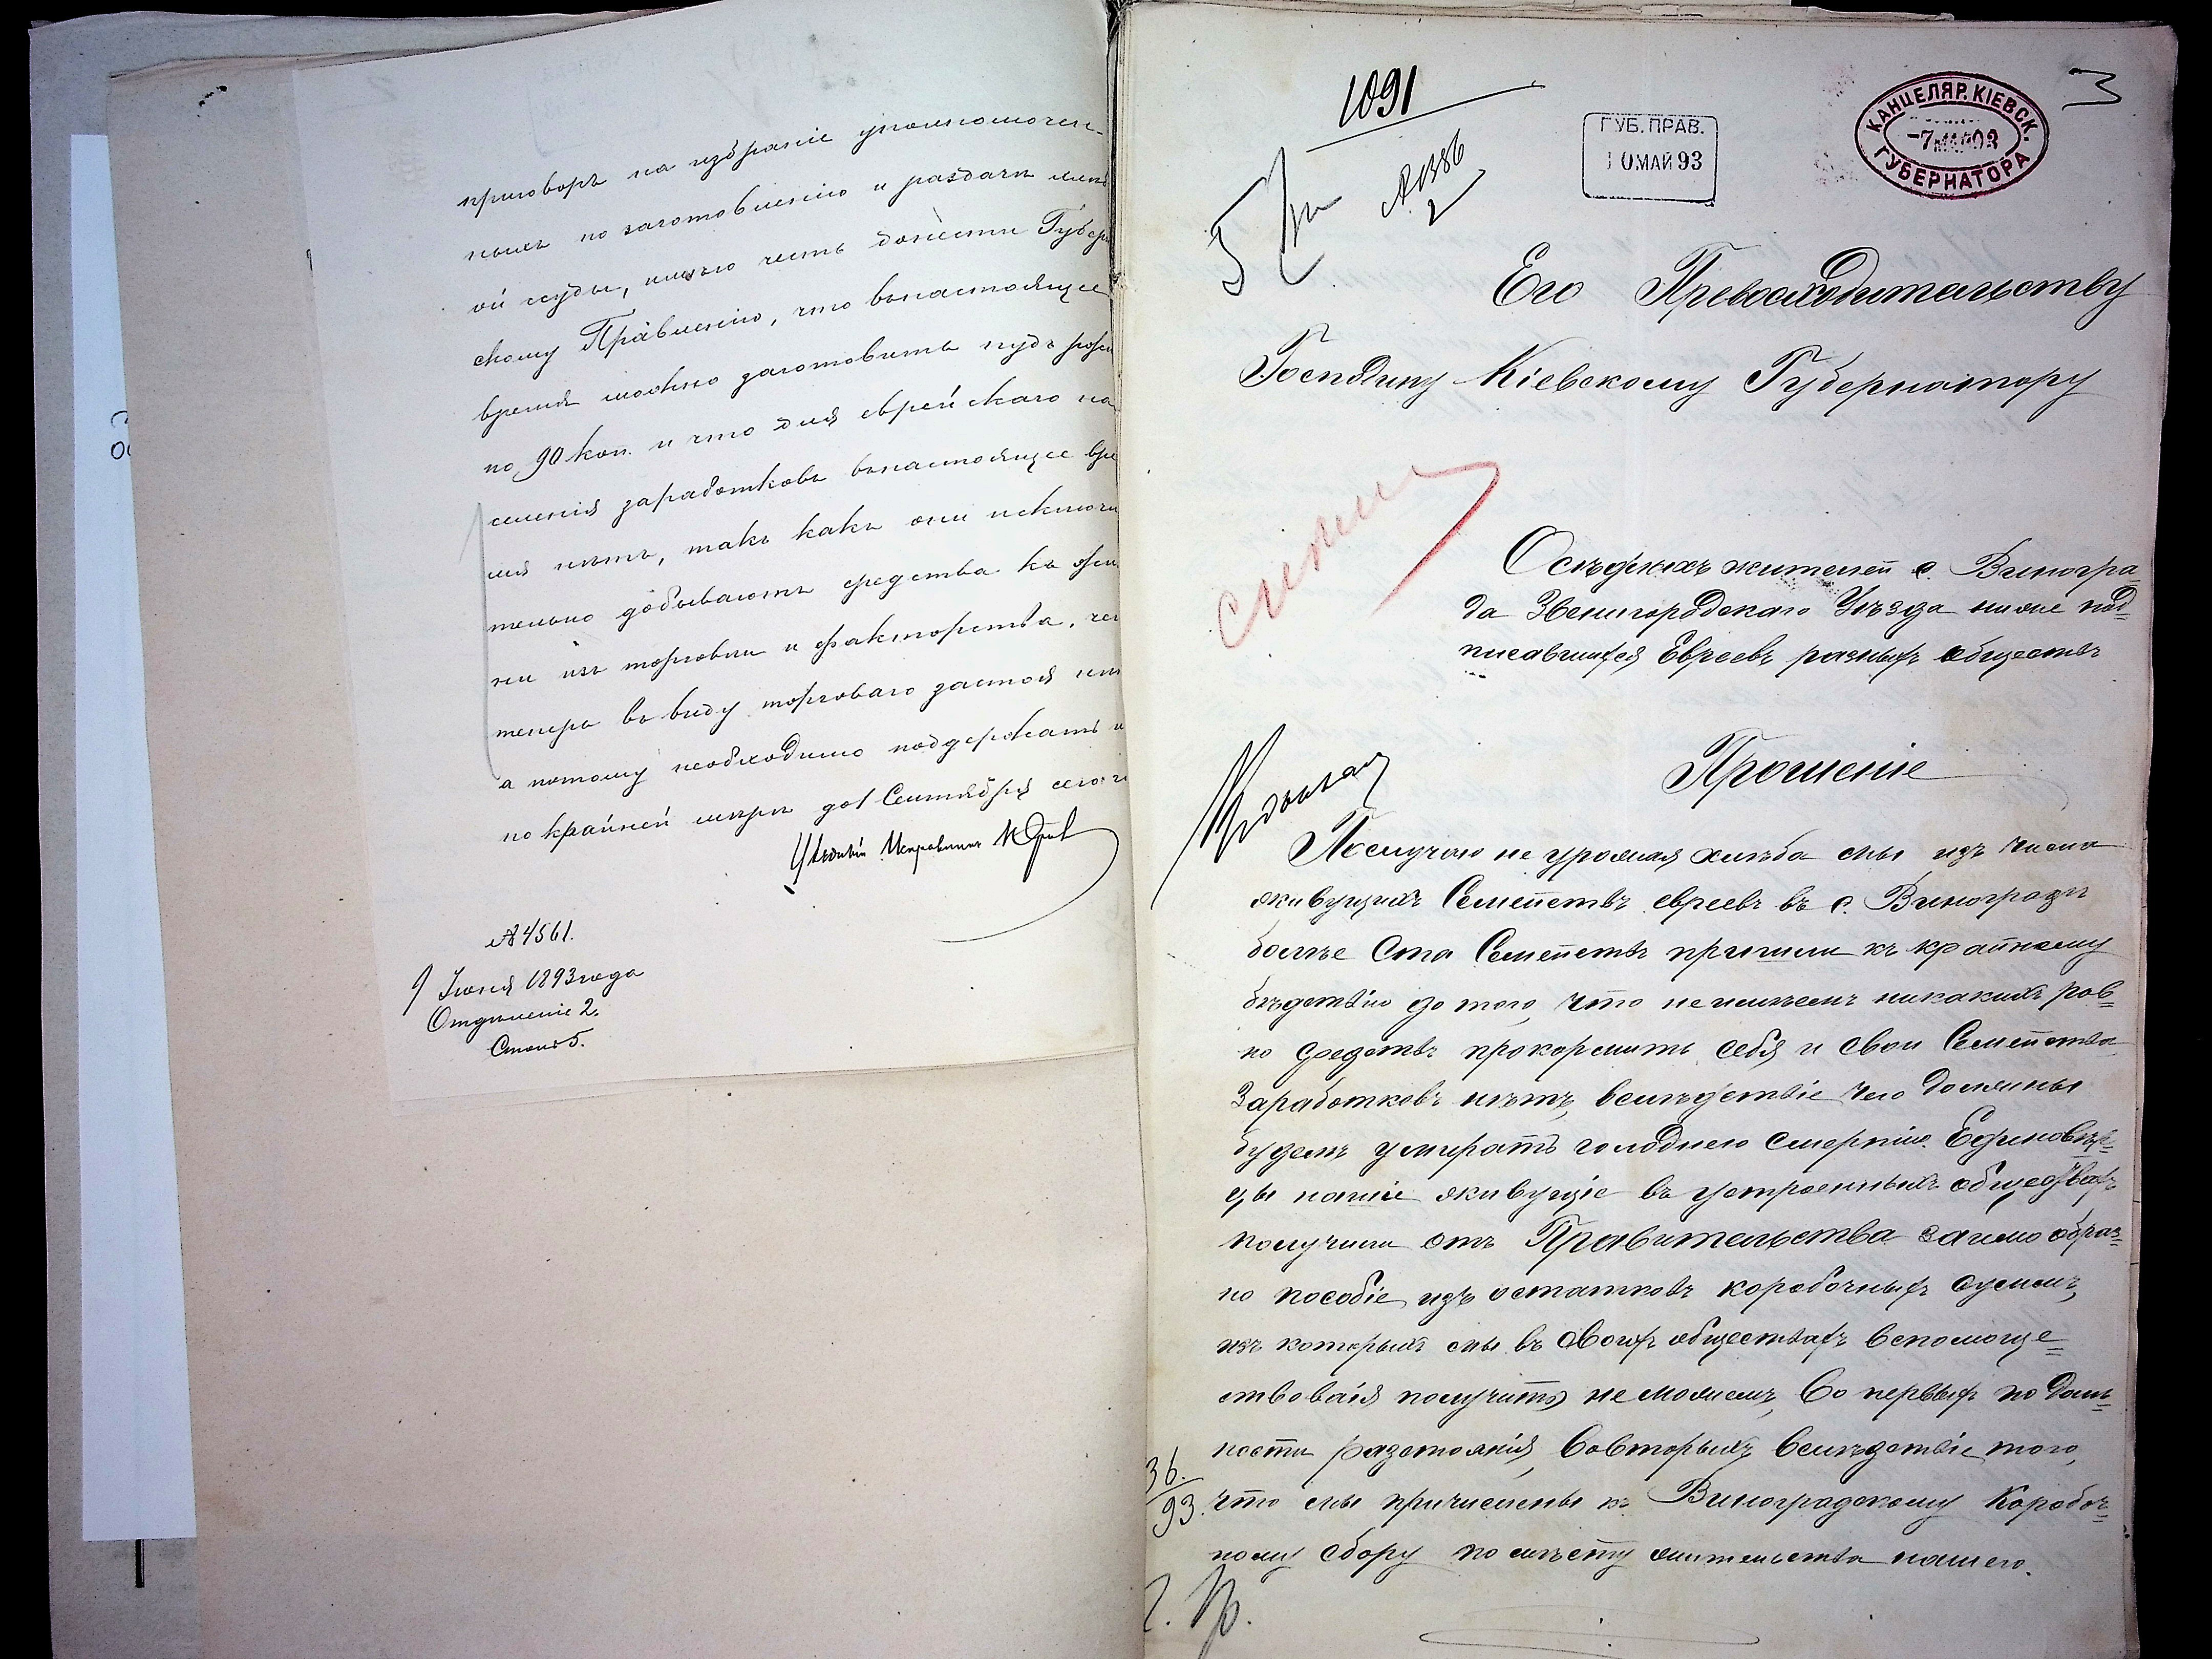 приговоръ на избраніе уполномочен-
ныхъ по заготовленію и раздачи
ой ссуды, имѣю честь донести Губерн
скому Правленію, что въ настоящее
время можно заготовить пудъ ржи
по 90 коп. и что для еврейскаго на
селенія заработковъ въ настоящее вре
мя нѣтъ, такъ какъ они исключи
тельно добываютъ средства къ жиз
ни изъ торговли и факторства, чего
теперь въ виду торговаго застоя нѣт
а потому необходимо поддержать и
по крайней мѣрѣ до 1 Сентября сего г
Уѣздный Исправникъ
№ 4561.
9 Іюня 1893 года
Отдѣленіе 2.
Столъ 5.
1091
№ 1386
2
5
ГУБ. ПРАВ.
10 МАЙ 93
КАНЦЕЛЯР. КІЕВСК. ГУБЕРНАТОРА
3
Его Превосходительству
Господину Кіевскому Губернатору
Осѣдлыхъ жителей с. Виногра-
да Звенигородскаго Уѣзда ниже под=
писавшихся Евреевъ разныхъ обществъ
Прошеніе
По случаю не урожая хлѣба мы изъ числа
живущихъ Семействъ евреевъ въ с. Виноградѣ
болѣе Ста Семействъ пришли къ крайнему
бѣдствію до того, что не имѣемъ никакихъ ров=
но средствъ прокормить себя и свои Семейства
Заработковъ нѣтъ, вслѣдствіе чего должны
будемъ умирать голодною смертію. Единовѣр=
цы наши живущіе въ устроенныхъ обществахъ
получили отъ Правительства заимо образ=
но пособіе изъ остатковъ коробочныхъ суммъ,
изъ которыхъ мы въ своихъ обществахъ вспомоще=
ствованія получить не можемъ, Во первыхъ по даль=
ности разстоянія, Вовторыхъ вслѣдствіе того,
36.
93.
что мы причислены къ Виноградскому Коробоч=
ному сбору по мѣсту жительства нашего.